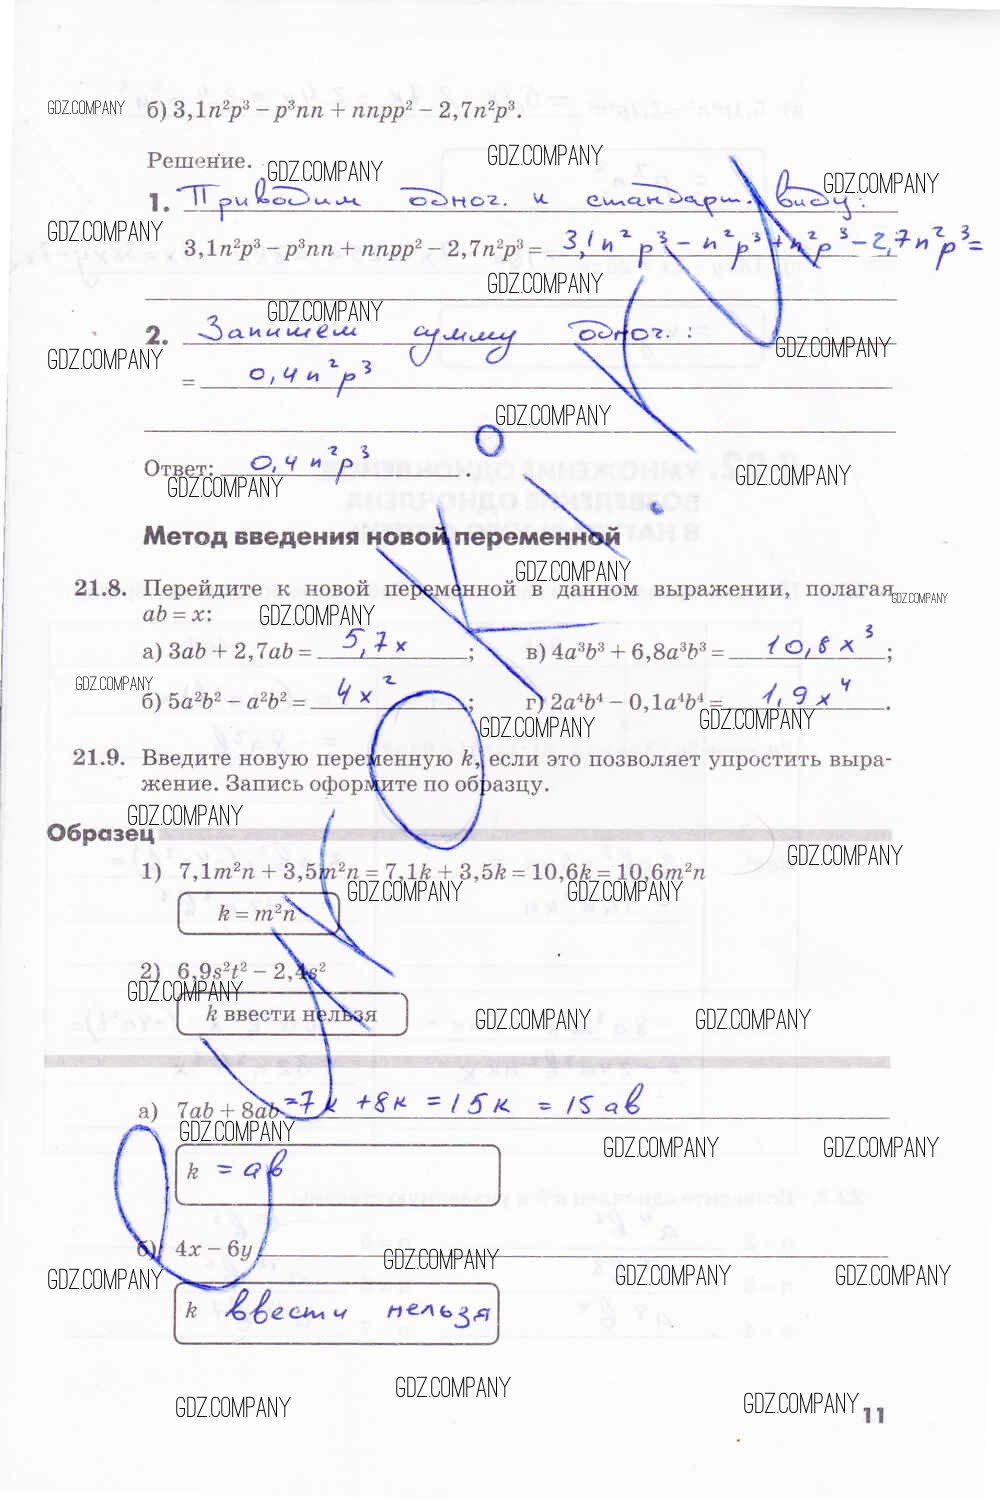 GDZ.COMPANY б) 3,1n²p³ – p³nn + nnpp² – 2,7n²p³.
Решение. GDZ.COMPANY GDZ.COMPANY GDZ.COMPANY
1. Приводим одноч. к стандарт. виду:
GDZ.COMPANY 3,1n²p³ – p³nn + nnpp² – 2,7n²p³ = 3,1n²p³ – n²p³ + n²p³ – 2,7n²p³ =
GDZ.COMPANY GDZ.COMPANY
2. Запишем сумму одноч.:
GDZ.COMPANY GDZ.COMPANY
= 0,4n²p³
GDZ.COMPANY
Ответ: 0,4n²p³.
GDZ.COMPANY GDZ.COMPANY
Метод введения новой переменной
GDZ.COMPANY
21.8. Перейдите к новой переменной в данном выражении, полагая GDZ.COMPANY
ab = x: GDZ.COMPANY
а) 3ab + 2,7ab = 5,7x; в) 4a³b³ + 6,8a³b³ = 10,8x³;
GDZ.COMPANY
б) 5a²b² – a²b² = 4x²; г) 2a⁴b⁴ – 0,1a⁴b⁴ = 1,9x⁴.
GDZ.COMPANY GDZ.COMPANY
21.9. Введите новую переменную k, если это позволяет упростить выра-
жение. Запись оформите по образцу.
GDZ.COMPANY
Образец
GDZ.COMPANY
1) 7,1m²n + 3,5m²n = 7,1k + 3,5k = 10,6k = 10,6m²n
GDZ.COMPANY GDZ.COMPANY
k = m²n
2) 6,9s²t² – 2,4s²
GDZ.COMPANY
k ввести нельзя GDZ.COMPANY GDZ.COMPANY
а) 7ab + 8ab =7к +8к =15к = 15ав
GDZ.COMPANY GDZ.COMPANY GDZ.COMPANY
k = ав
б) 4x – 6y
GDZ.COMPANY GDZ.COMPANY GDZ.COMPANY GDZ.COMPANY
k ввести нельзя
GDZ.COMPANY GDZ.COMPANY GDZ.COMPANY
11
Урокi.RU